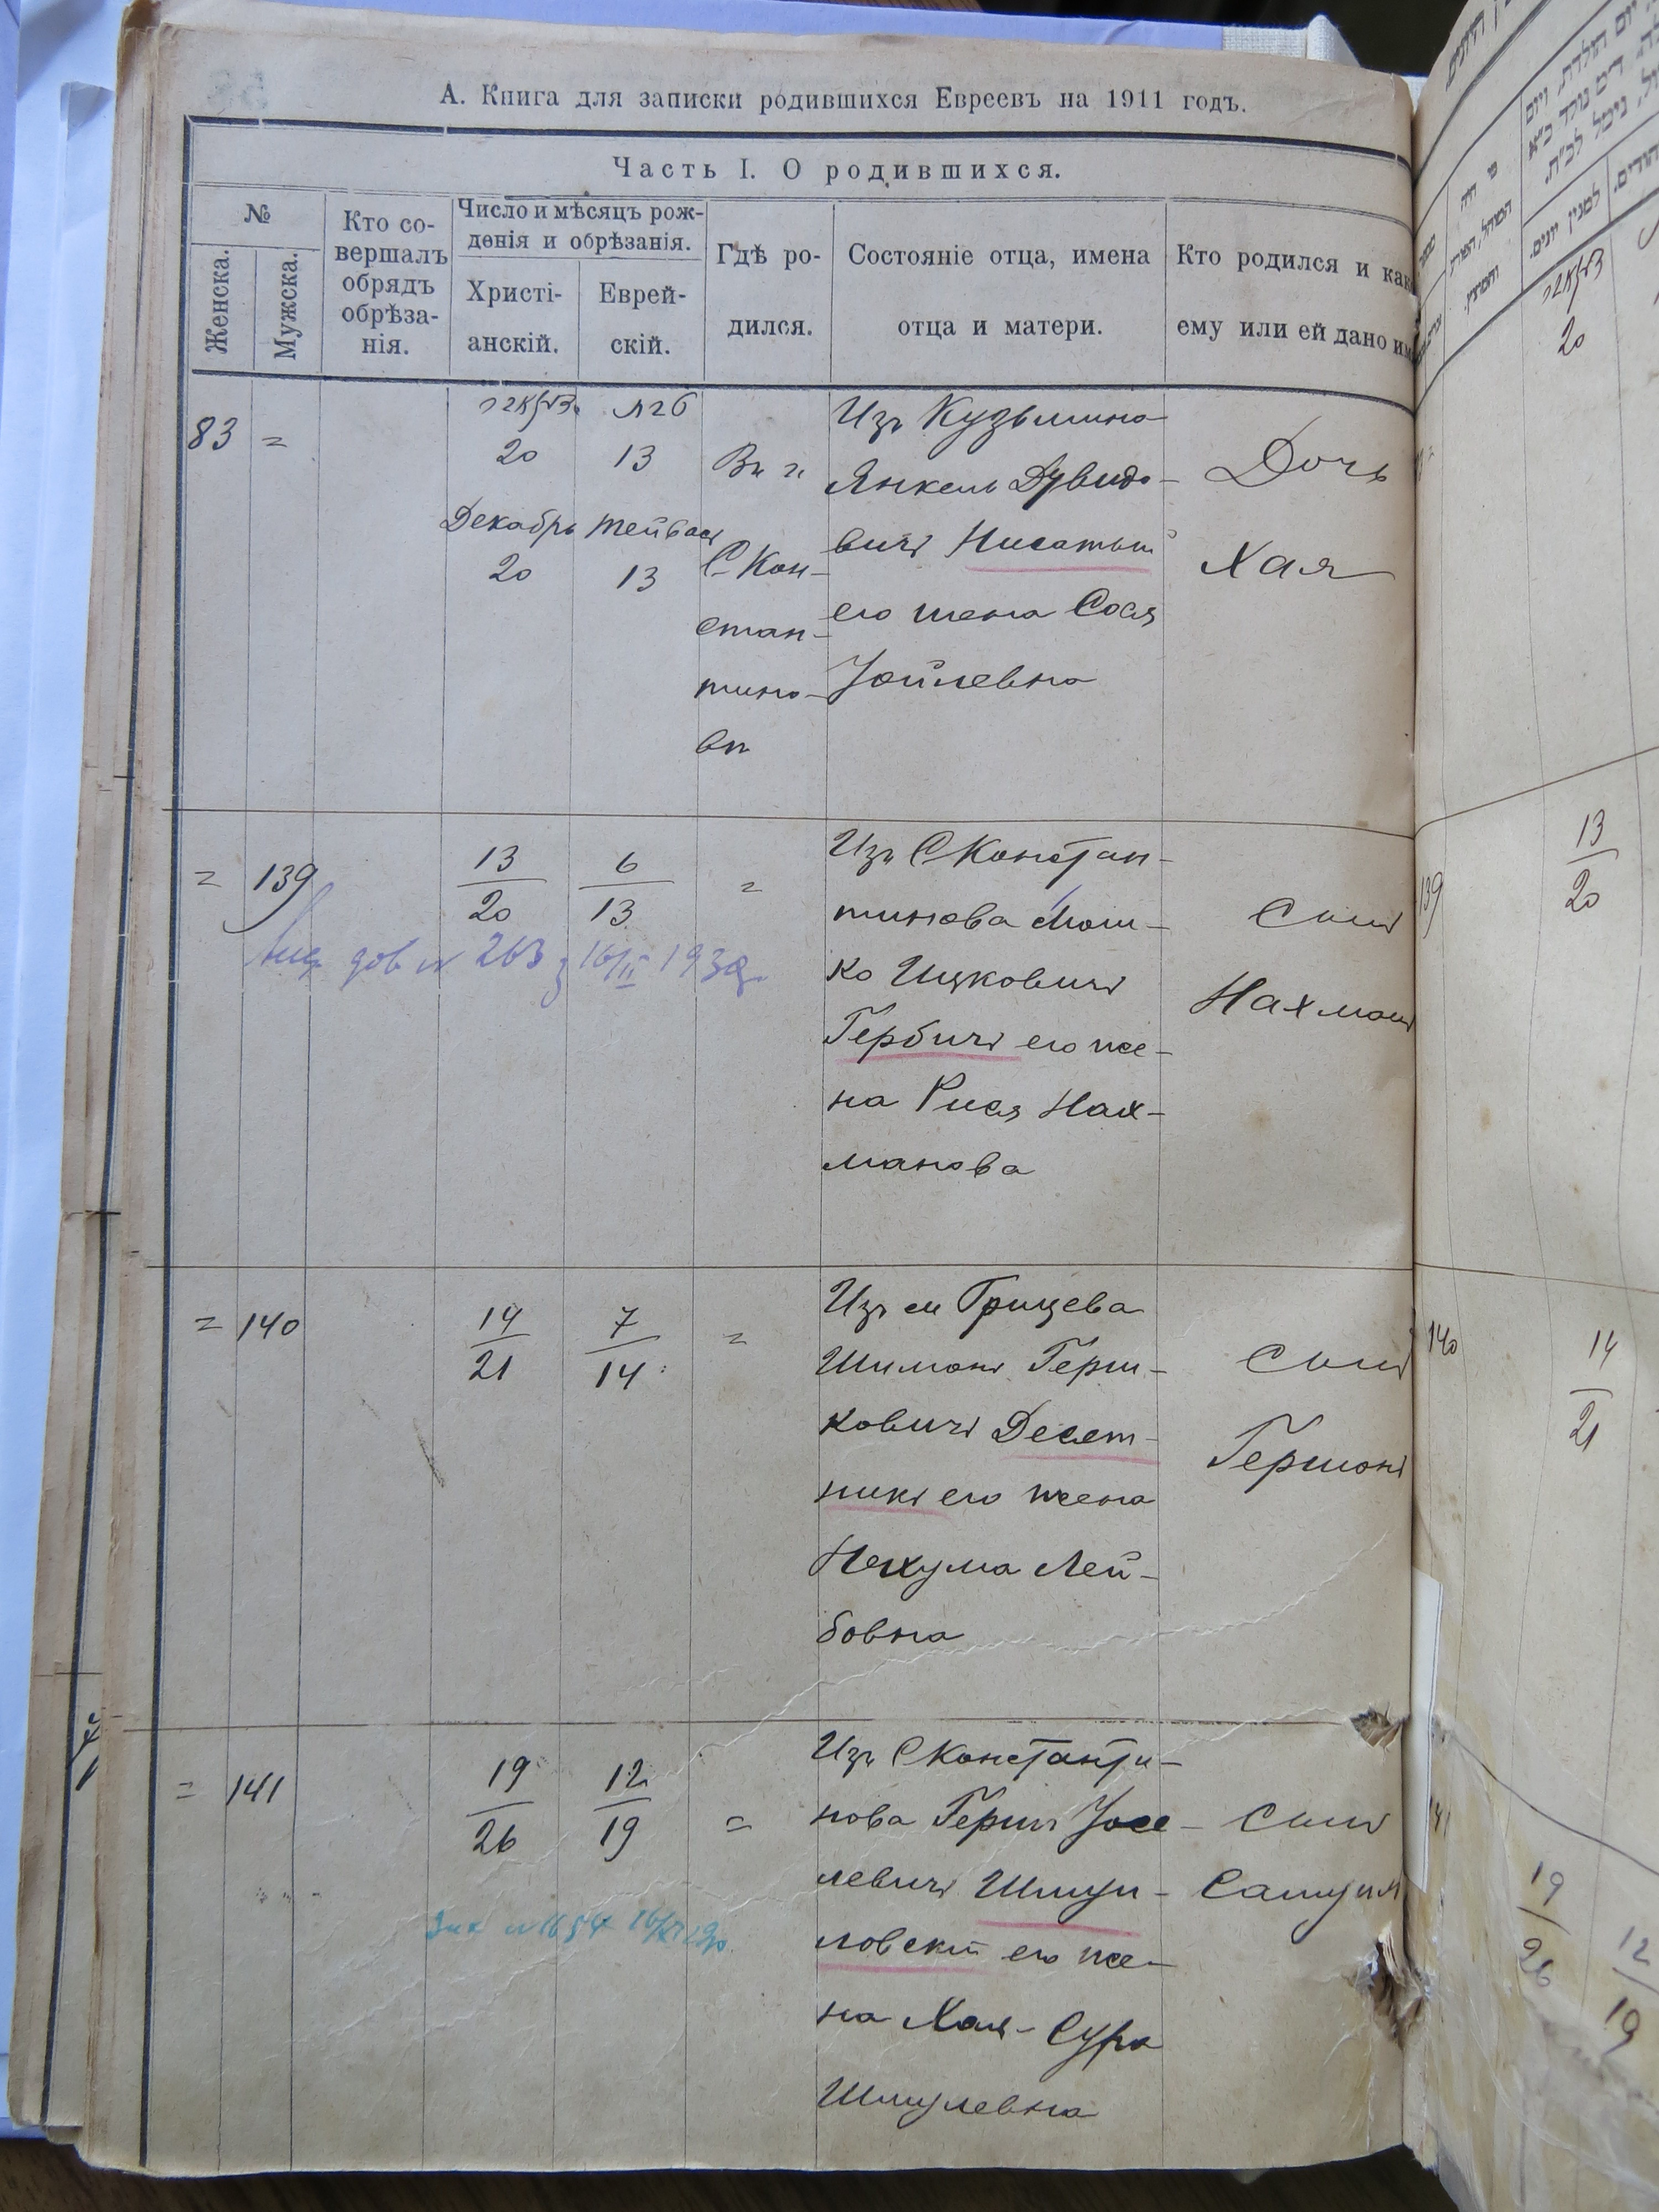 А. Книга для записки родившихся Евреевъ на 1911 годъ.
Часть I. О родившихся.
№
Женска.
Мужска.
Кто со-
вершалъ
обрядъ
обрѣза-
нія.
Число и мѣсяцъ рож-
денія и обрѣзанія.
Христі-
анскій.
Еврей-
скій.
Гдѣ ро-
дился.
Состояніе отца, имена
отца и матери.
Кто родился и как
ему или ей дано им
83 =
20 13
Декабрь Тейвася
20 13
Въ г
С Кон-
стан-
тино-
вѣ
Изъ Кузьмина
Янкель Дувидо-
вичъ Нисатый
его жена Сося
Іойлевна
Дочь
Хая
= 139
13 6
20 13
=
263 16/II 193
Изъ С Констан-
тинова Мош-
ко Ицковичъ
Гербичъ его же-
на Рися Нах-
манова
Сынъ
Нахманъ
= 140
14 7
21 14
=
Изъ м Грицева
Шимонъ Герш-
ковичъ Десят-
никъ его жена
Нехума Лей-
бовна
Сынъ
Гершонъ
= 141
19 12
26 19
=
Изъ С Константи-
нова Гершъ Іосе-
левичъ Шмуй-
ловскій его же-
на Хая-Сура
Шмулевна
Сынъ
Самуил
20
139
13
20
140
14
21
19
26
12
19